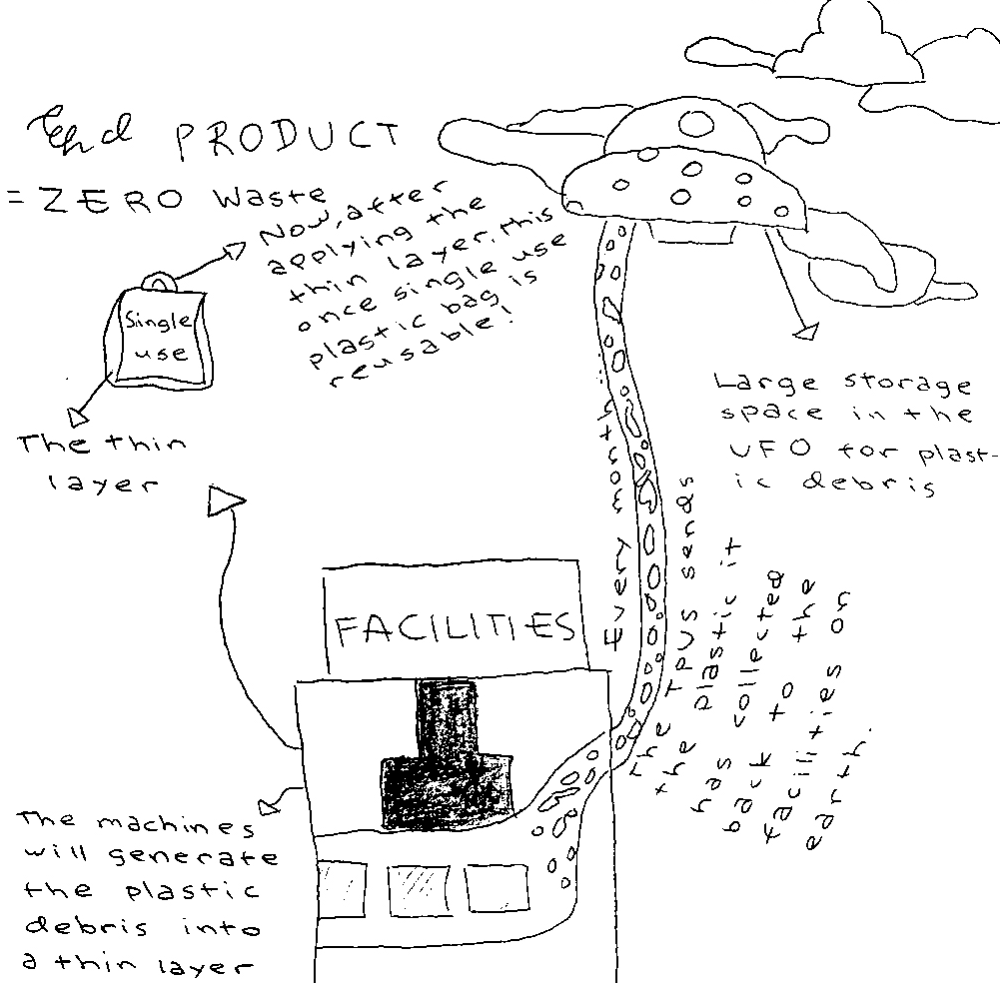 End PRODUCT
= ZERO Waste
Now, after
applying the
thin layer, this
once single use
plastic bag is
reusable!
Single
use
The thin
layer
Large storage
space in the
UFO for plast-
ic debris
Every month
the TPVS sends
the plastic it
has collected
back to the
facilities on
earth.
FACILITIES
The machines
will generate
the plastic
debris into
a thin layer